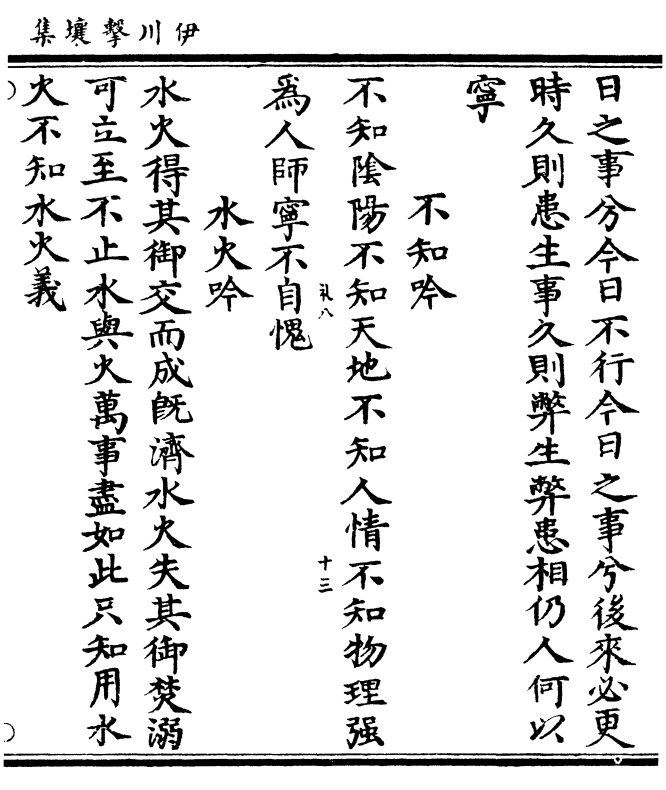 伊川擊壤集
日之事兮今日不行今日之事兮後來必更
時久則患生事久則弊生弊患相仍人何以
寧
不知吟
不知陰陽不知天地不知人情不知物理强
為人師寧不自愧
礼八
十三
水火吟
水火得其御交而成旣濟水火失其御焚溺
可立至不止水與火萬事盡如此只知用水
火不知水火義